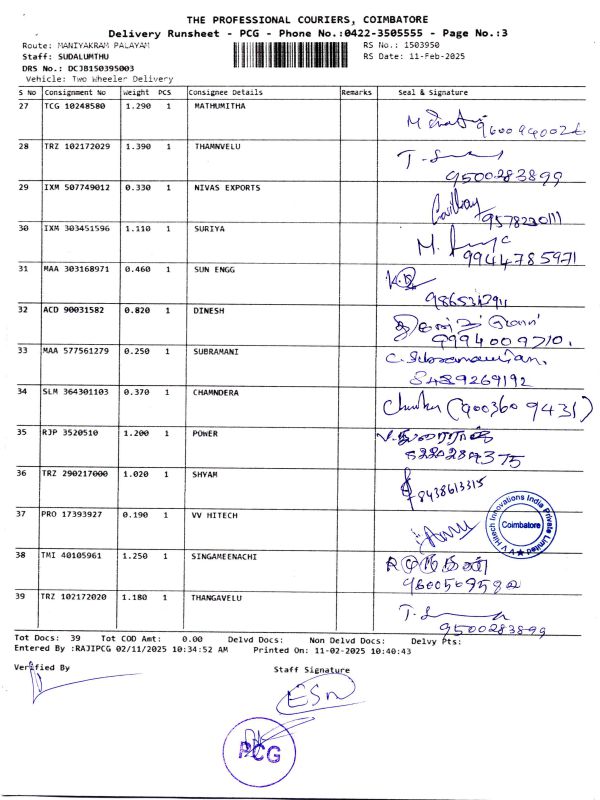 THE PROFESSIONAL COURIERS, COIMBATORE
Delivery Runsheet - PCG - Phone No.:0422-3505555 - Page No.:3
Route: MANIYAKRAM PALAYAM RS No.: 1503950
Staff: SUDALUMTHU RS Date: 11-Feb-2025
DRS No.: DCJB150395003
Vehicle: Two Wheeler Delivery
S No Consignment No Weight PCS Consignee Details Remarks Seal & Signature
27 TCG 10248580 1.290 1 MATHUMITHA
9600940026
28 TRZ 102172029 1.390 1 THAMNVELU
9500283899
29 IXM 507749012 0.330 1 NIVAS EXPORTS
9578230111
30 IXM 303451596 1.110 1 SURIYA
9944785971
31 MAA 303168971 0.460 1 SUN ENGG
32 ACD 90031582 0.820 1 DINESH
9994009710.
33 MAA 577561279 0.250 1 SUBRAMANI
C. Subramanian.
8489269192
34 SLM 364301103 0.370 1 CHAMNDERA
(9003609431)
35 RJP 3520510 1.200 1 POWER
36 TRZ 290217000 1.020 1 SHYAM
8438613315
37 PRO 17393927 0.190 1 VV HITECH
V V Hitech Innovations India Private Limited
Coimbatore
38 TMI 40105961 1.250 1 SINGAMEENACHI
39 TRZ 102172020 1.180 1 THANGAVELU
9500283899
Tot Docs: 39 Tot COD Amt: 0.00 Delvd Docs: Non Delvd Docs: Delvy Pts:
Entered By :RAJIPCG 02/11/2025 10:34:52 AM Printed On: 11-02-2025 10:40:43
Verified By Staff Signature
ESn
PCG